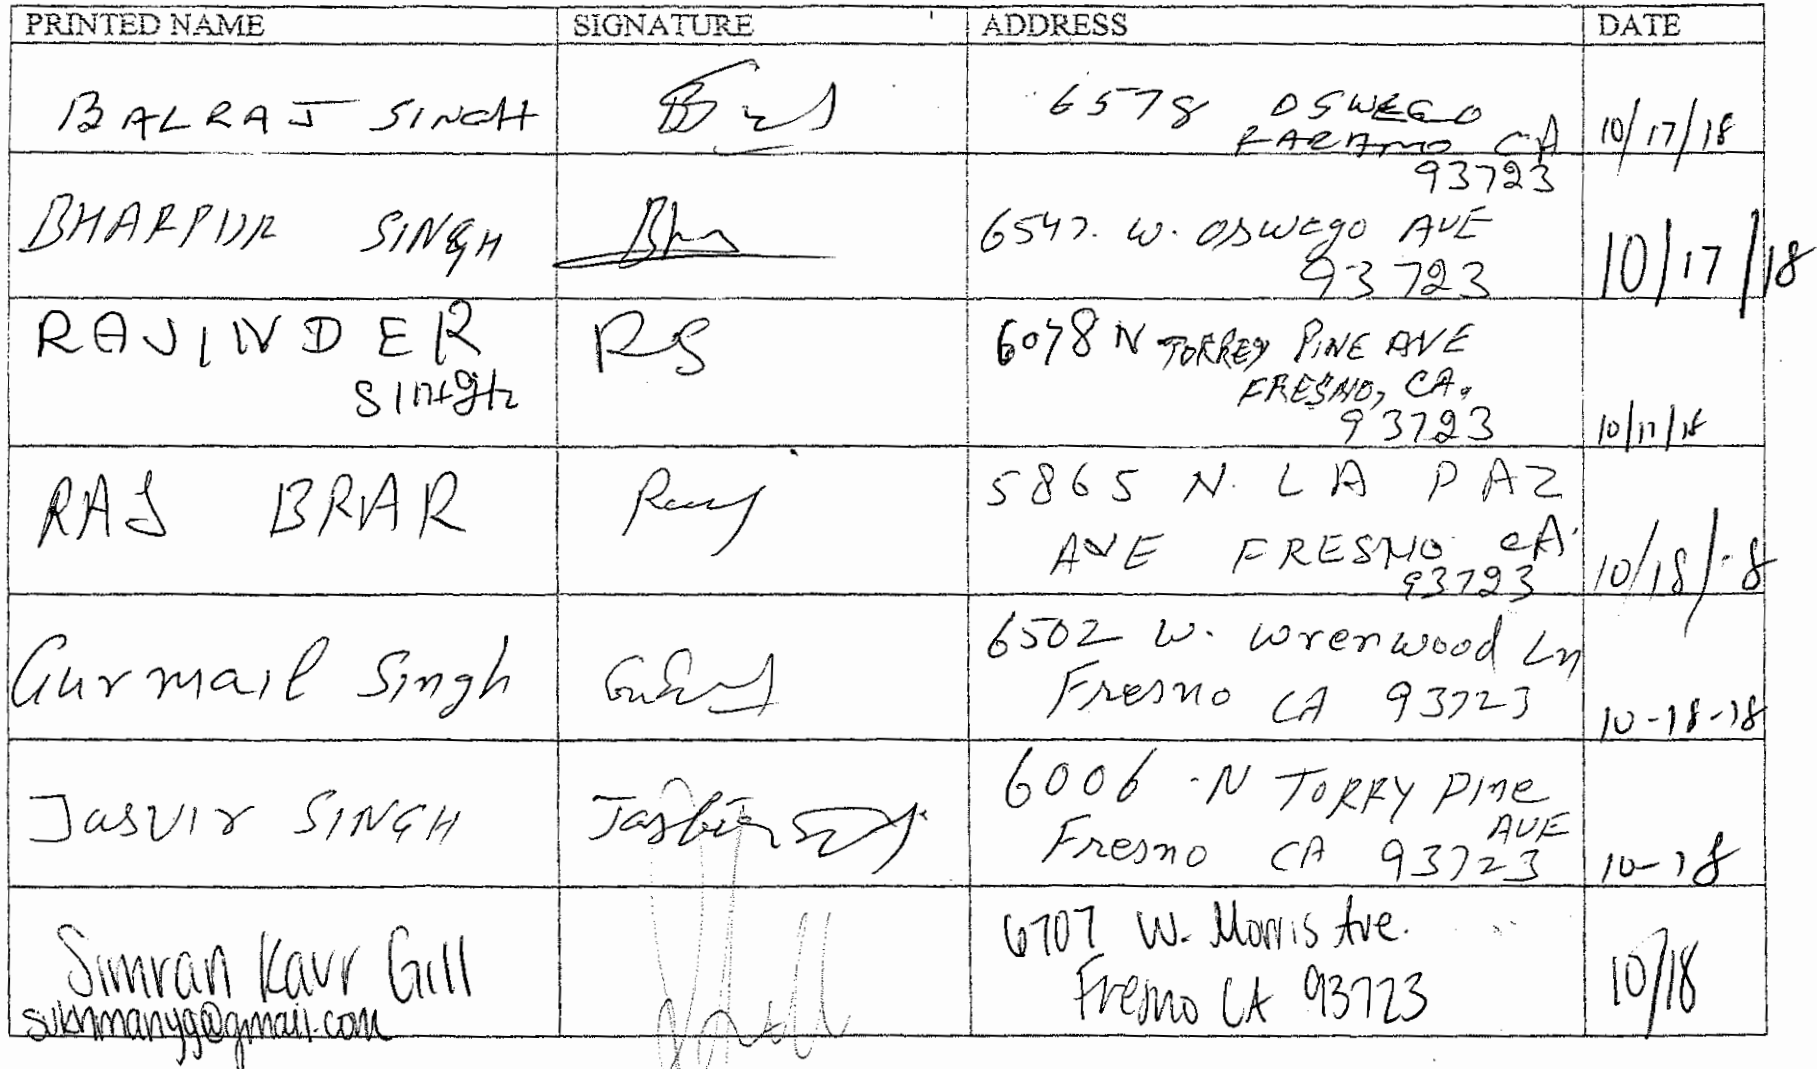 PRINTED NAME SIGNATURE ADDRESS DATE
BALRAJ SINGH 6578 OSWEGO
CA 10/17/18
93723
BHARPUR SINGH 6547. W. OSWEGO AVE
93723 10/17/18
RAJINDER RS 6078 N TORREY PINE AVE
SINGH FRESNO, CA.
93723 10/17/18
RAJ BRAR 5865 N. LA PAZ
AVE FRESNO CA
93723 10/18/18
Gurmail Singh 6502 W. Wrenwood Ln
Fresno CA 93723 10-18-18
Jasvir SINGH Jasbir 6006 N TORRY Pine
AVE
Fresno CA 93723 10-18
Simran Kaur Gill 6707 W. Morris Ave.
Fresno CA 93723 10/18
sukhmanyg@gmail.com